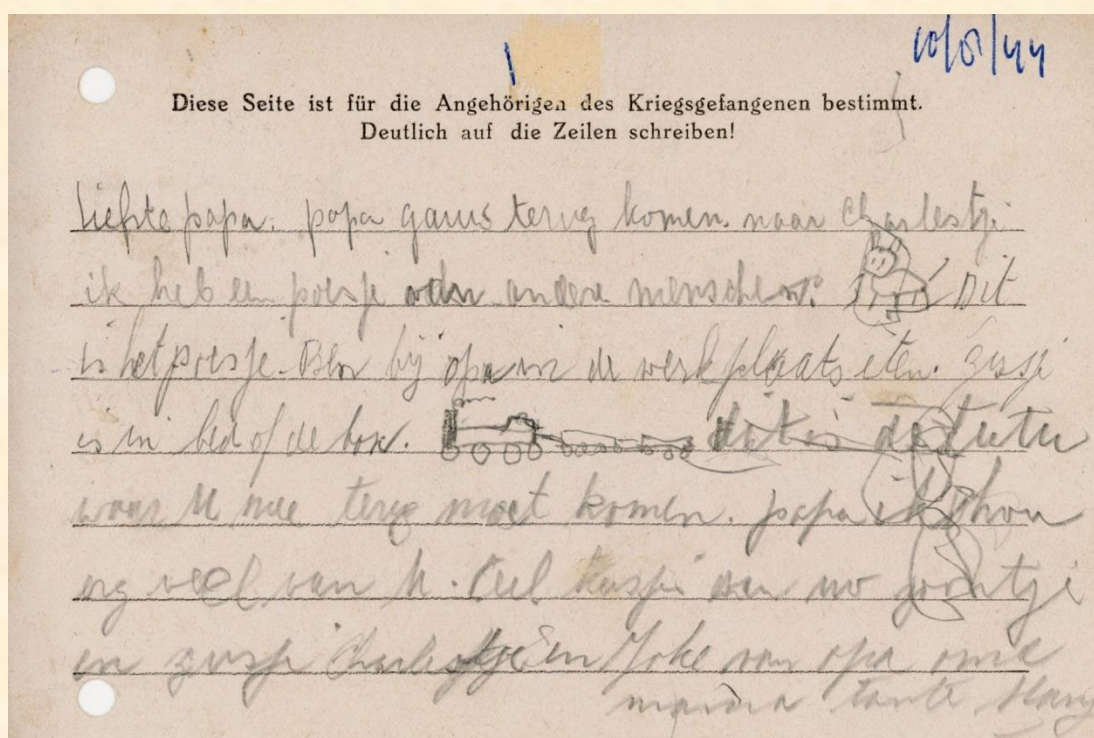 10/8/44
Diese Seite ist für die Angehörigen des Kriegsgefangenen bestimmt.
Deutlich auf die Zeilen schreiben!
Liefste papa. papa gauw terug komen. naar Charlestje
ik heb een poesje van andere menschen. Dit
is het poesje. Ben bij opa in de werkplaats eten. Zusje
is in bed of de box. dit is de tuter
waar U mee terug moet komen. papa ik hou
erg veel van U. Veel kusjes van uw zoontje
en zusje Charlestje en Joke van opa oma
mama tante